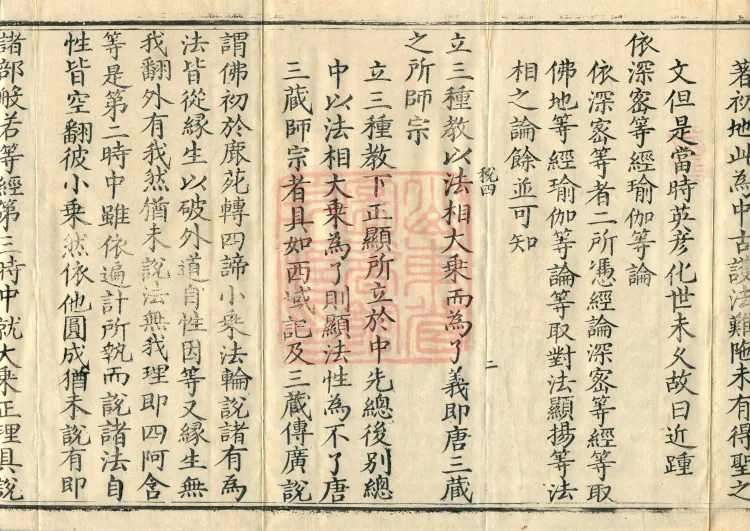 著初地此為中古護法難陁未有得聖之
文但是當時英彥化世未久故曰近踵
依深密等經瑜伽等論
依深密等者二所憑經論深密等經等取
佛地等經瑜伽等論等取對法顯揚等法
相之論餘並可知
稅四
二
立三種教以法相大乗而為了義即唐三藏
之所師宗
立三種教下正顯所立於中先總後別總
中以法相大乗為了則顯法性為不了唐
三藏師宗者具如西域記及三藏傳廣說
謂佛初於鹿苑轉四諦小乗法輪說諸有為
法皆從緣生以破外道自性因等又緣生無
我翻外有我然猶未說法無我理即四阿含
等是第二時中雖依遍計所執而說諸法自
性皆空翻彼小乗然依他圓成猶未說有即
諸部般若等經第三時中就大乗正理具說